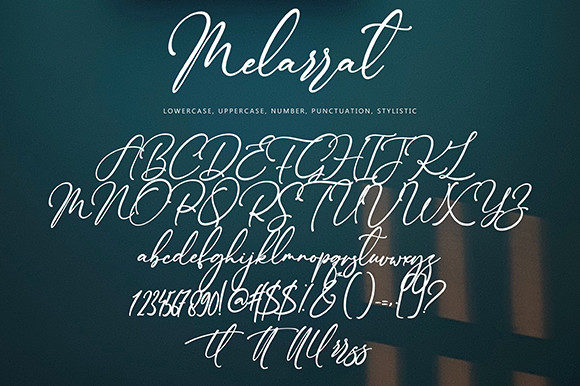 Melarrat
LOWERCASE, UPPERCASE, NUMBER, PUNCTUATION, STYLISTIC
ABCDEFGHIJKL
MNOPQRSTUVWXYZ
abcdefghijklmnopqrstuvwxyz
1234567890!@#$%&()-=,.?
tt rr ss